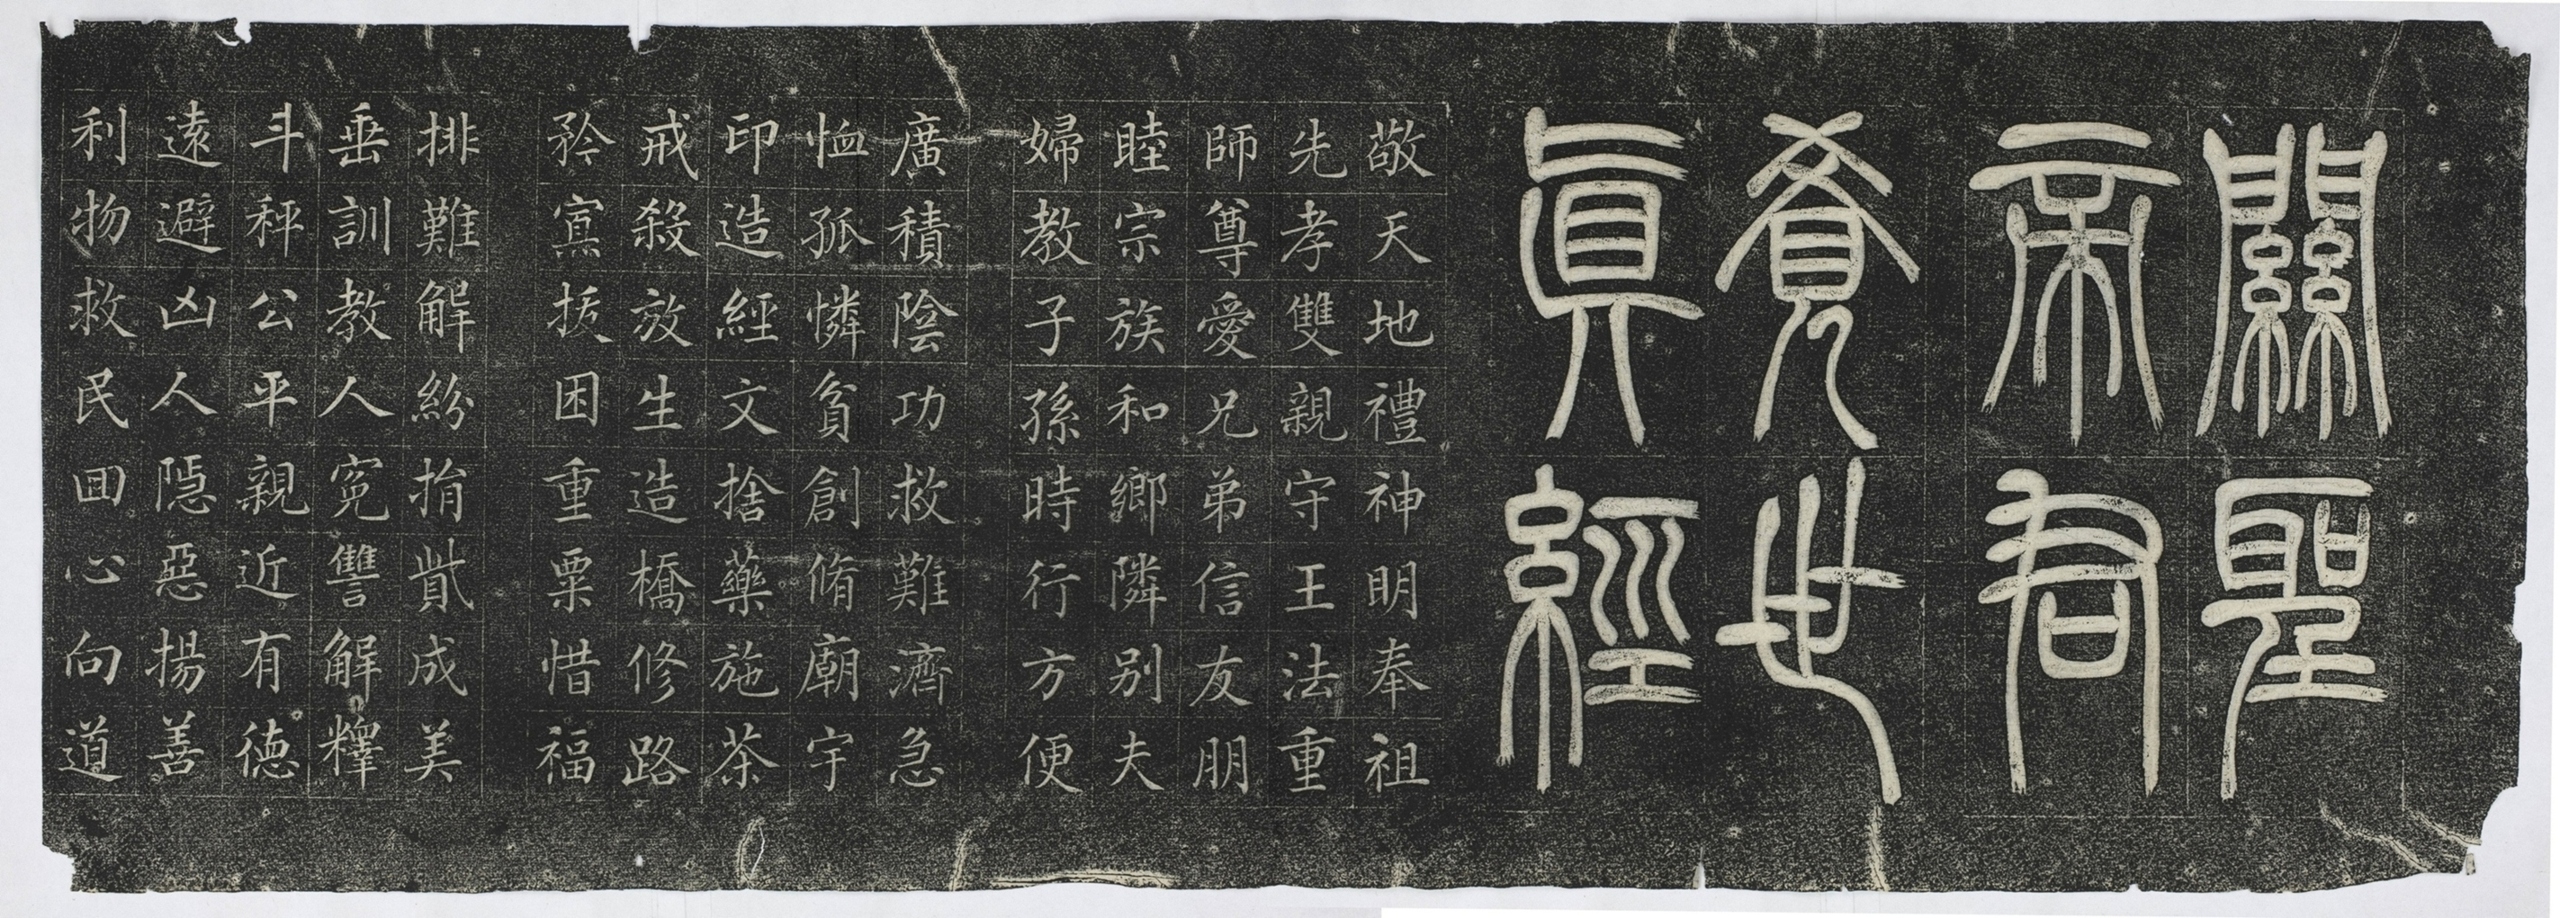 關聖
帝君
覺世
眞經
敬天地禮神明奉祖
先孝雙親守王法重
師尊愛兄弟信友朋
睦宗族和鄉隣别夫
婦教子孫時行方便
廣積陰功救難濟急
恤孤憐貧創脩廟宇
印造經文捨藥施茶
戒殺放生造橋修路
矜寡拔困重粟惜福
排難解紛捐貲成美
垂訓教人寃讐解釋
斗秤公平親近有德
遠避凶人隱惡揚善
利物救民囬心向道